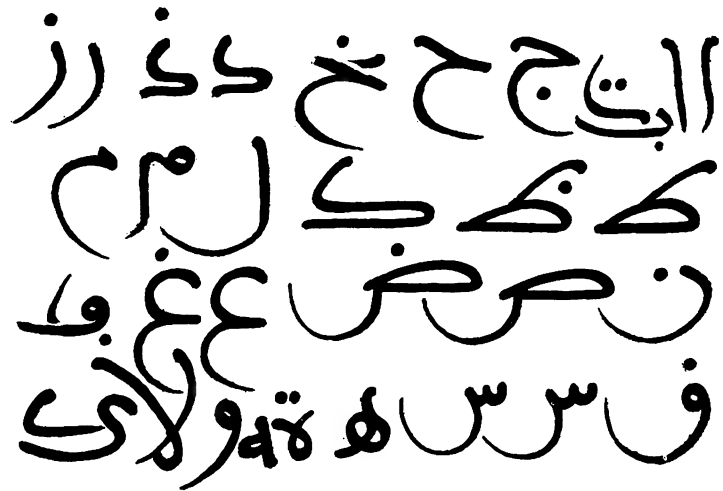 ا ا ب ت ج ح خ د ذ ر ز
ط ظ ك ل م م
ن ص ض ع غ ڢ
ف س س ه ة ه و لا ى